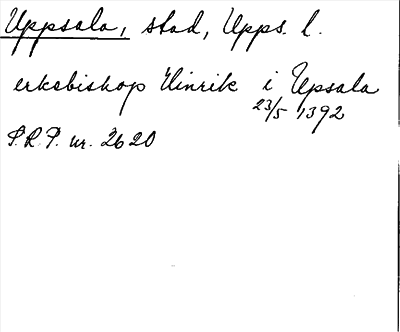 Uppsala, stad, Upps. l.
erkebiskop Hinrik i Upsala
23/5 1392
S.R.P. nr. 2620